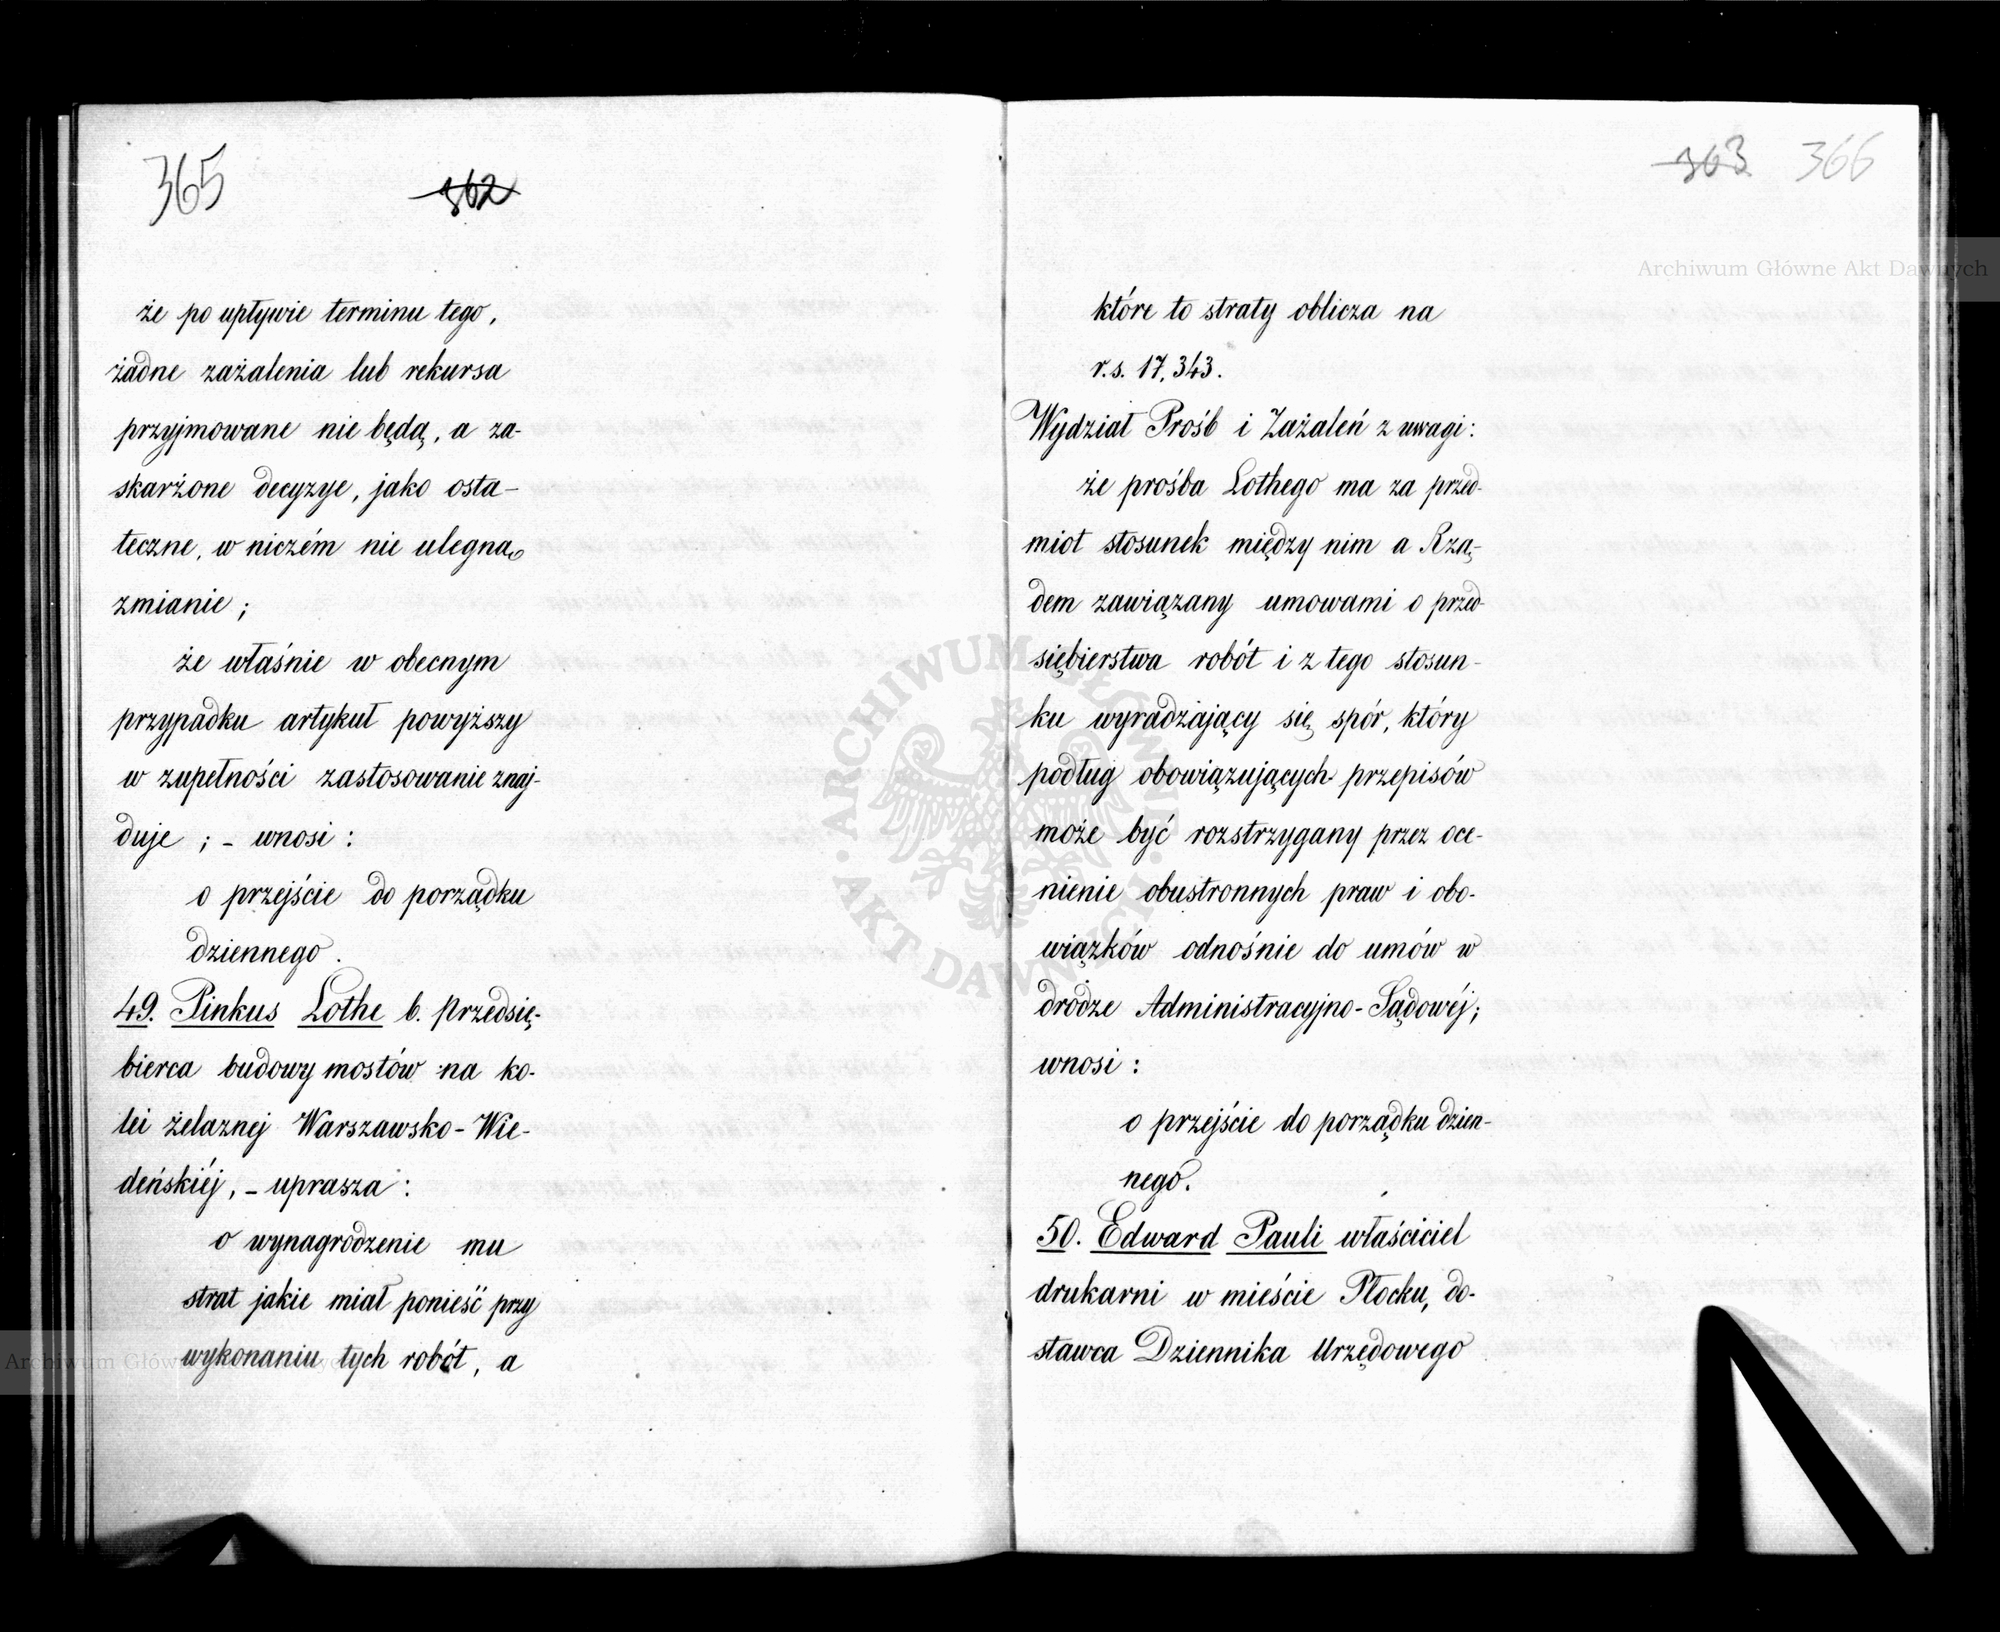 365 362
że po upływie terminu tego,
żadne zażalenia lub rekursa
przyjmowane nie będą, a za-
skarżone decyzye, jako osta-
teczne, w niczém nie ulegną
zmianie;
że właśnie w obecnym
przypadku artykuł powyższy
w zupełności zastosowanie znaj-
duje; - wnosi:
o przejście do porządku
dziennego.
49. Pinkus Lothe b. przedsię-
bierca budowy mostów na ko-
lei żelaznej Warszawsko-Wie-
deńskiéj, - uprasza:
o wynagrodzenie mu
strat jakie miał ponieść przy
wykonaniu tych robót, a
363 366
które to straty oblicza na
r.s. 17,343.
Wydział Prośb i Zażaleń z uwagi:
że prośba Lothego ma za przed-
miot stosunek między nim a Rzą-
dem zawiązany umowami o przed-
siębierstwa robót i z tego stosun-
ku wyradzający się spór, który
podług obowiązujących przepisów
może być rozstrzygany przez oce-
nienie obustronnych praw i obo-
wiązków odnośnie do umów w
drodze Administracyjno-Sądowéj;
wnosi:
o przejście do porządku dzien-
nego.
50. Edward Pauli właściciel
drukarni w mieście Płocku, do-
stawca Dziennika Urzędowego
Archiwum Główne Akt Dawnych
ARCHIWUM GŁÓWNE AKT DAWNYCH